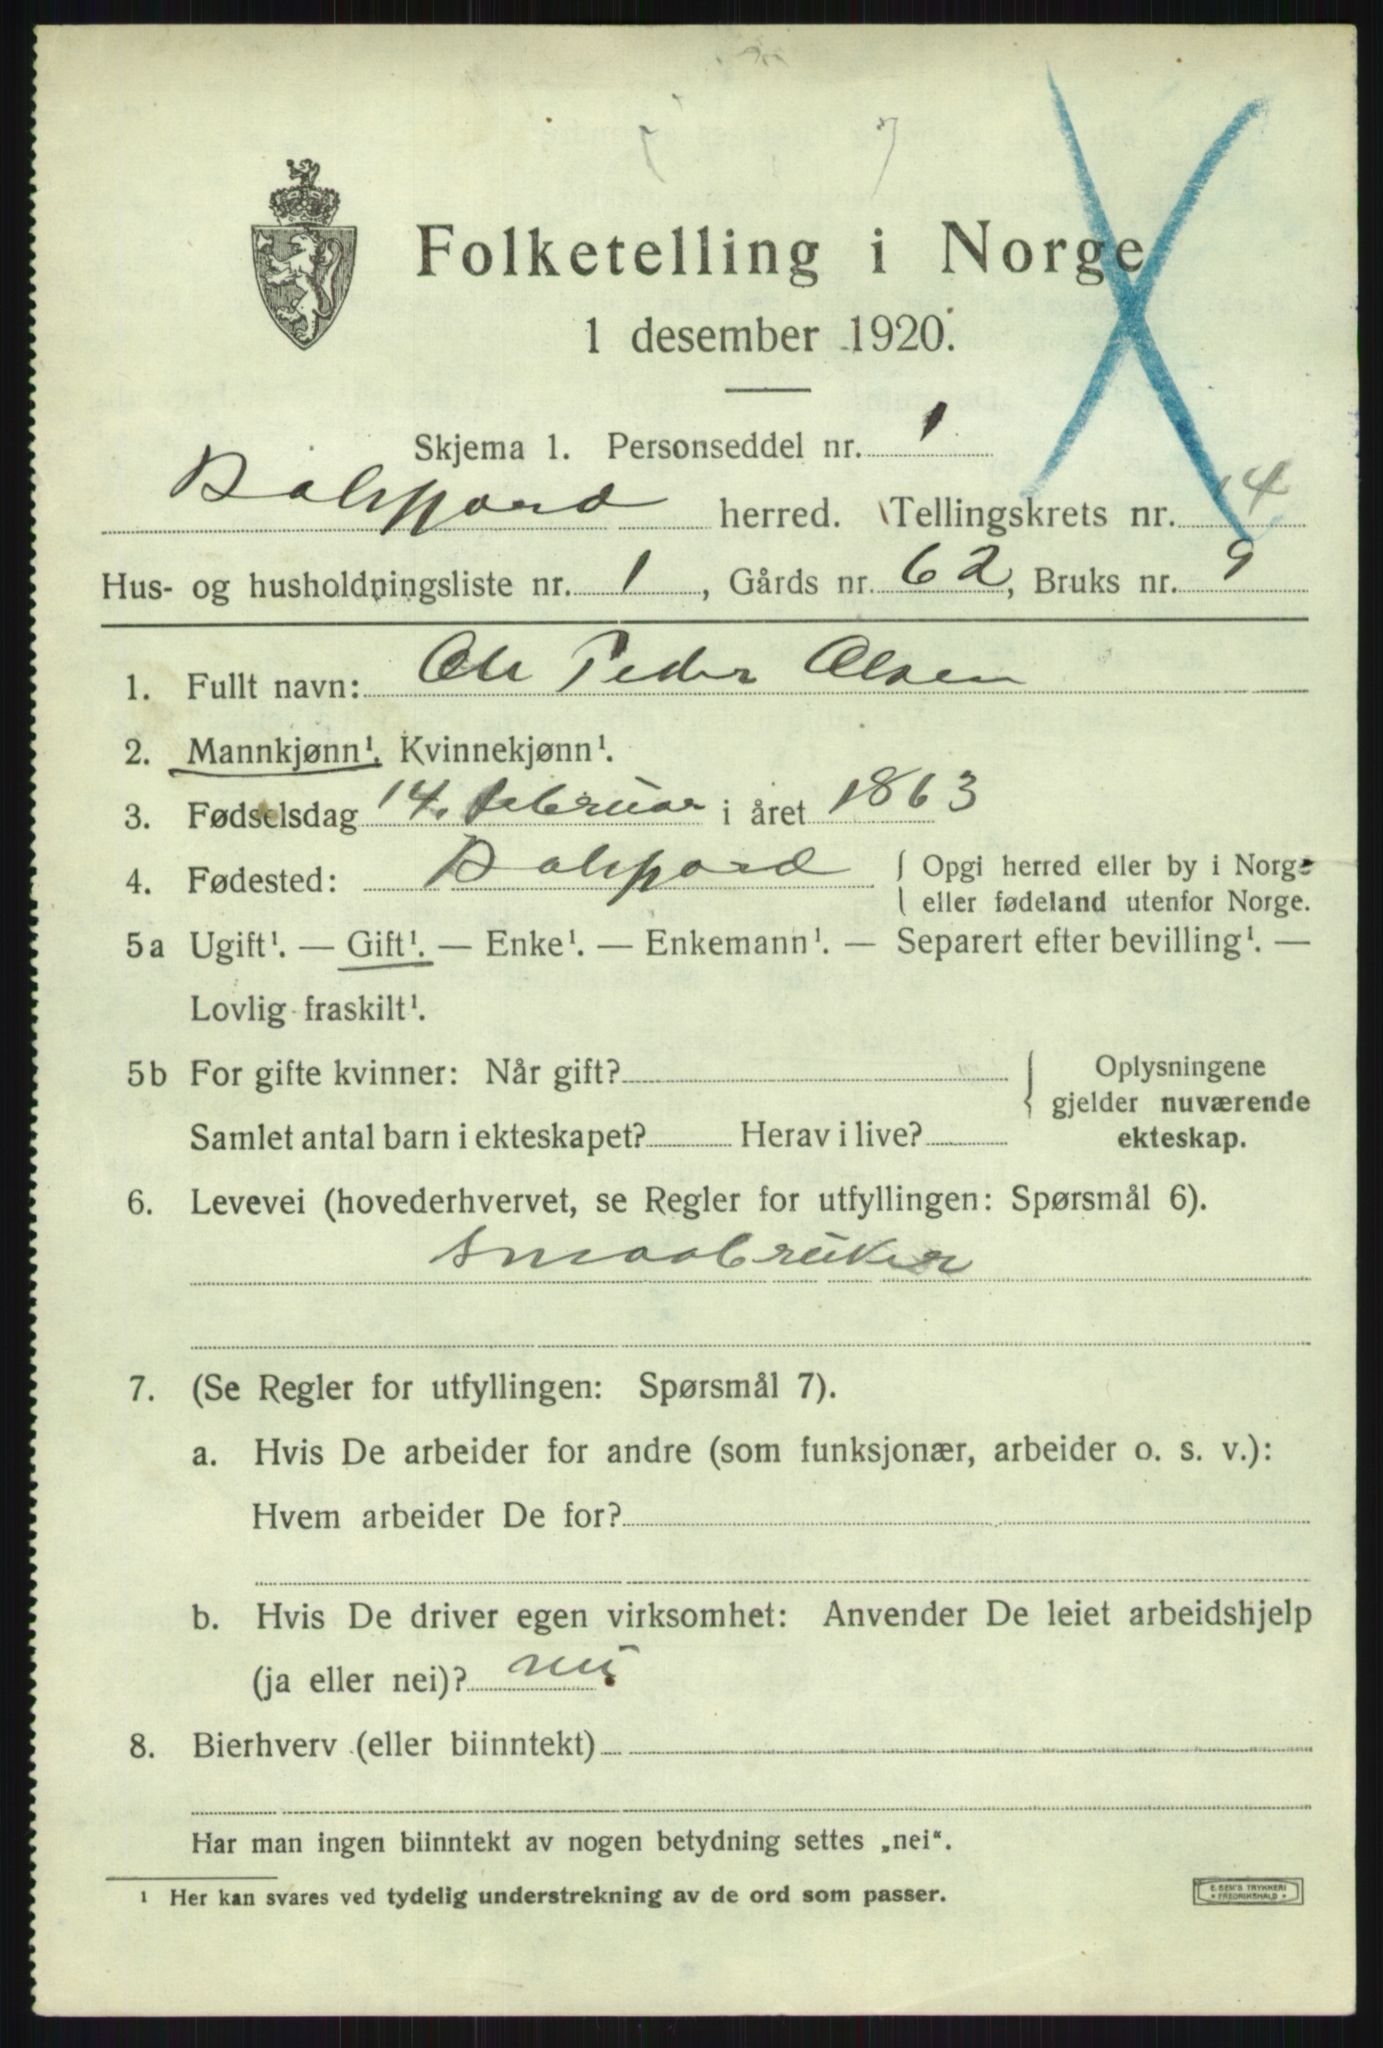 Folketelling i Norge
1 desember 1920.
Skjema 1. Personseddel nr. 1
Balsfjord herred. Tellingskrets nr. 14
Hus- og husholdningsliste nr. 1, Gårds nr. 62, Bruks nr. 9
1. Fullt navn: Ole Peder Olsen
2. Mannkjønn¹. Kvinnekjønn¹.
3. Fødselsdag 14. februar i året 1863
4. Fødested: Balsfjord { Opgi herred eller by i Norge
eller fødeland utenfor Norge.
5a Ugift¹. — Gift¹. — Enke¹. — Enkemann¹. — Separert efter bevilling¹. —
Lovlig fraskilt¹.
5b For gifte kvinner: Når gift? } Oplysningene
gjelder nuværende
Samlet antal barn i ekteskapet? Herav i live? ekteskap.
6. Levevei (hovederhvervet, se Regler for utfyllingen: Spørsmål 6).
Smaabruker
7. (Se Regler for utfyllingen: Spørsmål 7).
a. Hvis De arbeider for andre (som funksjonær, arbeider o. s. v.):
Hvem arbeider De for?
b. Hvis De driver egen virksomhet: Anvender De leiet arbeidshjelp
(ja eller nei)? nei
8. Bierhverv (eller biinntekt)
Har man ingen biinntekt av nogen betydning settes „nei“.
¹ Her kan svares ved tydelig understrekning av de ord som passer.
E. SEM'S TRYKKERI
* FREDRIKSHALD *